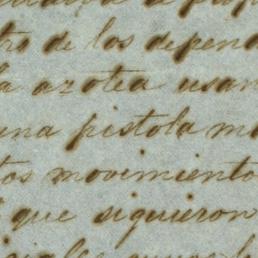 tro de los depen
la azotea usan
una pistola m
tos movimiento
que siguieron